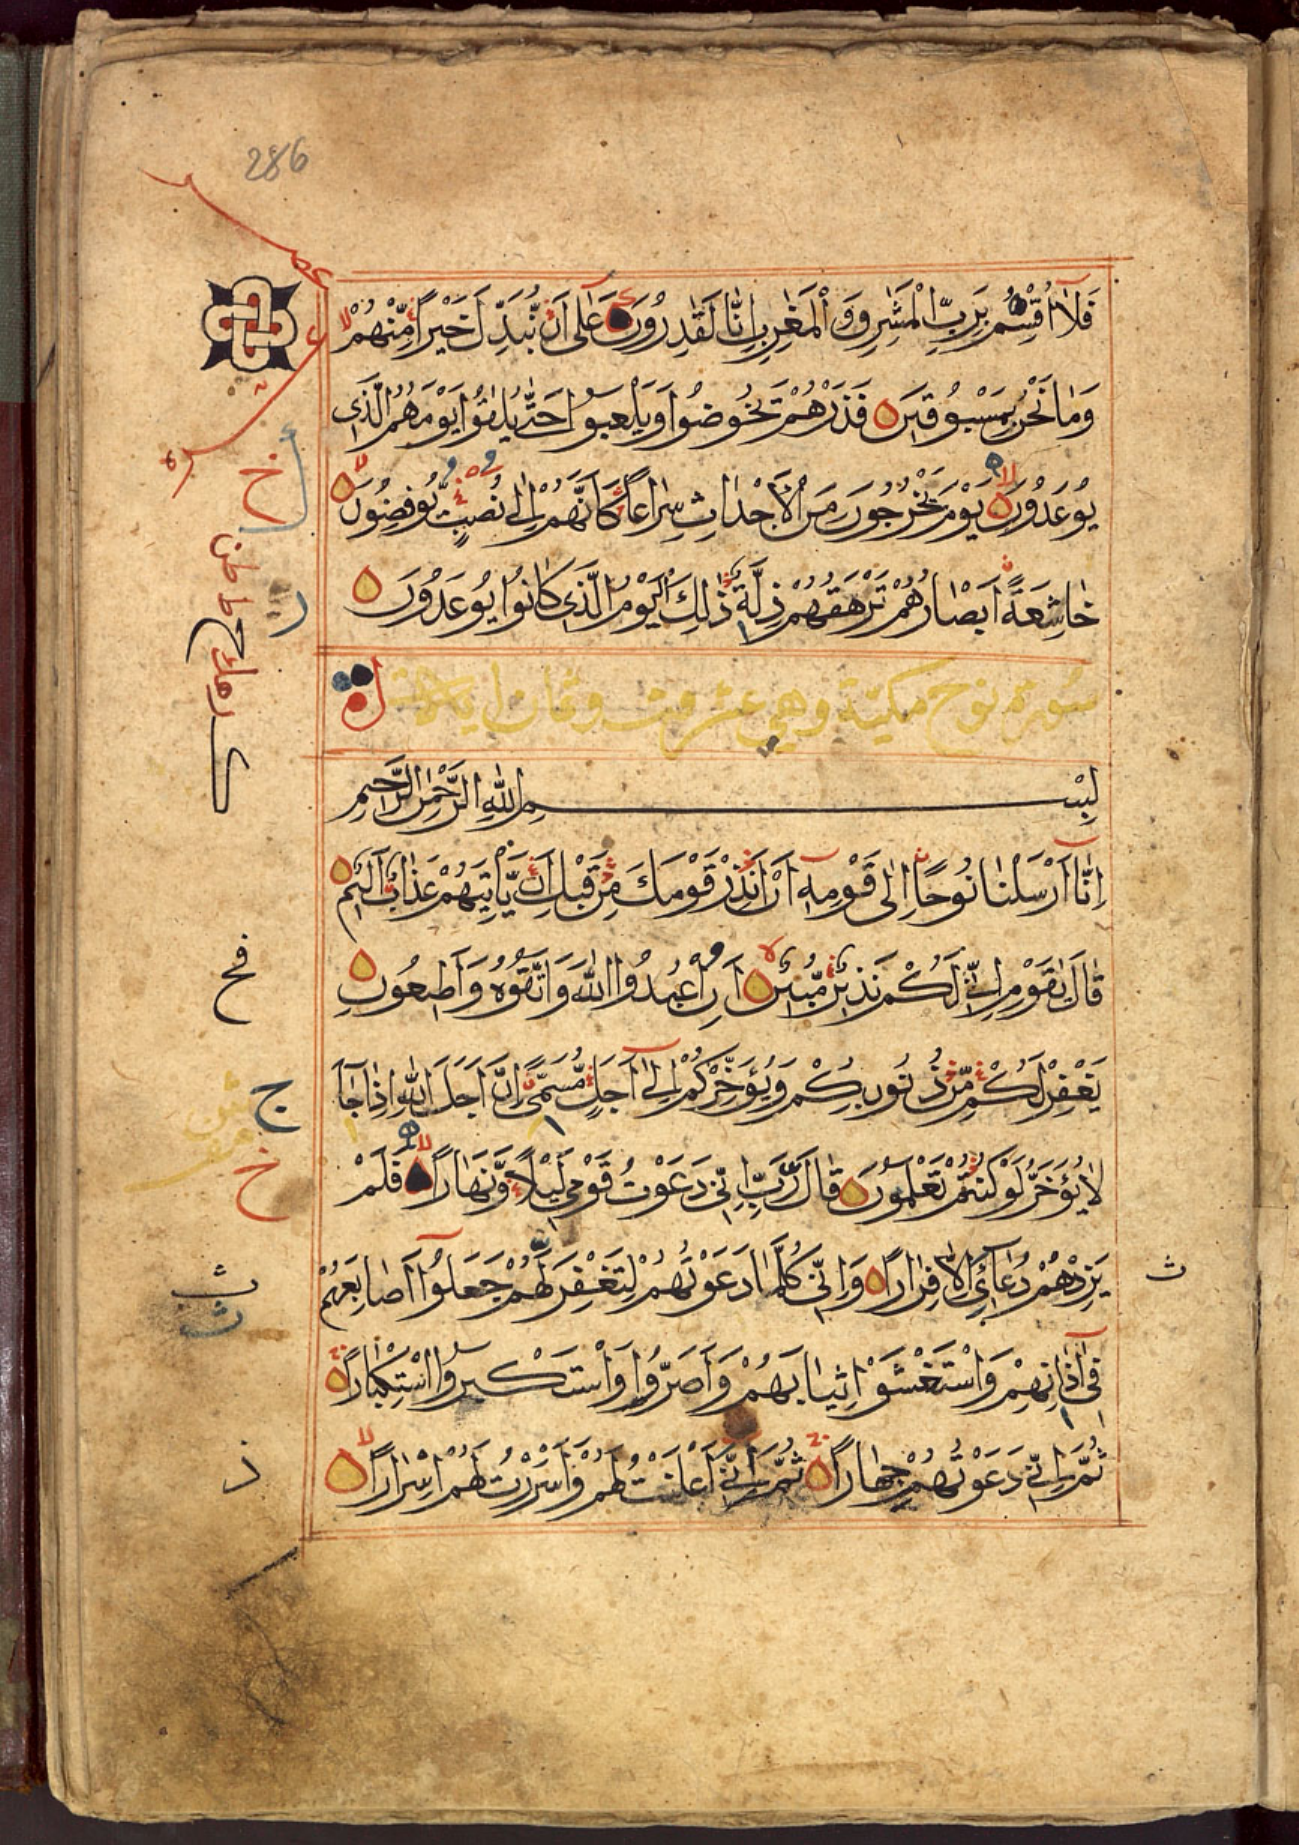 286
عشر
فَلَا أُقْسِمُ بِرَبِّ الْمَشٰرِقِ وَالْمَغٰرِبِ إِنَّا لَقٰدِرُونَ عَلٰى أَنْ نُّبَدِّلَ خَيْرًا مِّنْهُمْ
وَمَا نَحْنُ بِمَسْبُوقِينَ فَذَرْهُمْ يَخُوضُوا وَيَلْعَبُوا حَتّٰى يُلٰقُوا يَوْمَهُمُ الَّذِى
يُوعَدُونَ يَوْمَ يَخْرُجُونَ مِنَ الْأَجْدَاثِ سِرَاعًا كَأَنَّهُمْ إِلٰى نُصُبٍ يُّوفِضُونَ
خَاشِعَةً أَبْصَارُهُمْ تَرْهَقُهُمْ ذِلَّةٌ ذٰلِكَ الْيَوْمُ الَّذِى كَانُوا يُوعَدُونَ
سورة نوح مكية وهي عشرون وثمان ايات
بِسْمِ اللّٰهِ الرَّحْمٰنِ الرَّحِيمِ
إِنَّا أَرْسَلْنَا نُوحًا إِلٰى قَوْمِهِ أَنْ أَنْذِرْ قَوْمَكَ مِنْ قَبْلِ أَنْ يَّأْتِيَهُمْ عَذَابٌ أَلِيمٌ
قَالَ يٰقَوْمِ إِنِّى لَكُمْ نَذِيرٌ مُّبِينٌ أَنِ اعْبُدُوا اللّٰهَ وَاتَّقُوهُ وَأَطِيعُونِ
يَغْفِرْ لَكُمْ مِّنْ ذُنُوبِكُمْ وَيُؤَخِّرْكُمْ إِلٰى أَجَلٍ مُّسَمًّى إِنَّ أَجَلَ اللّٰهِ إِذَا جَاءَ
لَا يُؤَخَّرُ لَوْ كُنْتُمْ تَعْلَمُونَ قَالَ رَبِّ إِنِّى دَعَوْتُ قَوْمِى لَيْلًا وَّنَهَارًا فَلَمْ
يَزِدْهُمْ دُعَاءِى إِلَّا فِرَارًا وَإِنِّى كُلَّمَا دَعَوْتُهُمْ لِتَغْفِرَ لَهُمْ جَعَلُوا أَصَابِعَهُمْ
فِى آذَانِهِمْ وَاسْتَغْشَوْا ثِيَابَهُمْ وَأَصَرُّوا وَاسْتَكْبَرُوا اسْتِكْبَارًا
ثُمَّ إِنِّى دَعَوْتُهُمْ جِهَارًا ثُمَّ إِنِّى أَعْلَنْتُ لَهُمْ وَأَسْرَرْتُ لَهُمْ إِسْرَارًا
خ
فخ
ج
خ
ث
ث
ث
ذ